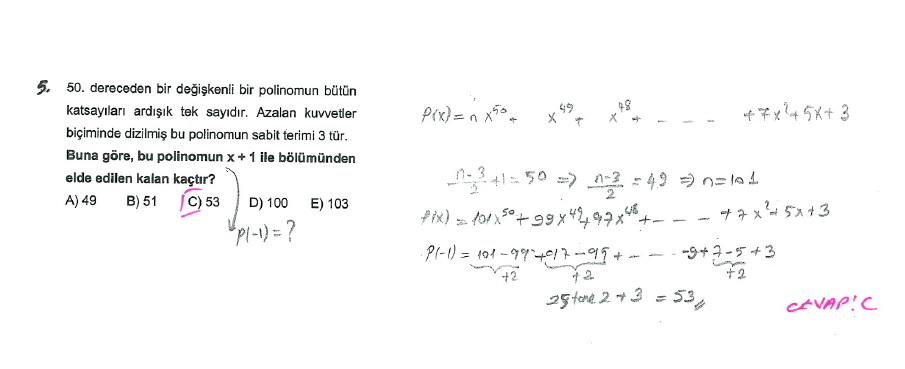 5. 50. dereceden bir değişkenli bir polinomun bütün
katsayıları ardışık tek sayıdır. Azalan kuvvetler
biçiminde dizilmiş bu polinomun sabit terimi 3 tür.
Buna göre, bu polinomun x + 1 ile bölümünden
elde edilen kalan kaçtır?
A) 49 B) 51 C) 53 D) 100 E) 103
P(-1) = ?
P(x) = n x⁵⁰ + x⁴⁹ + x⁴⁸ + - - - - + 7x² + 5x + 3
n-3/2 + 1 = 50 => n-3/2 = 49 => n = 101
P(x) = 101x⁵⁰ + 99x⁴⁹ + 97x⁴⁸ + - - - - + 7x² + 5x + 3
P(-1) = 101 - 99 + 97 - 95 + - - - - 9 + 7 - 5 + 3
+2 +2 +2
25 tane 2 + 3 = 53
CEVAP: C